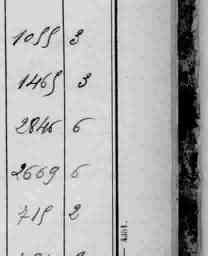 1055 3
1465 3
2846 6
2669 6
715 2